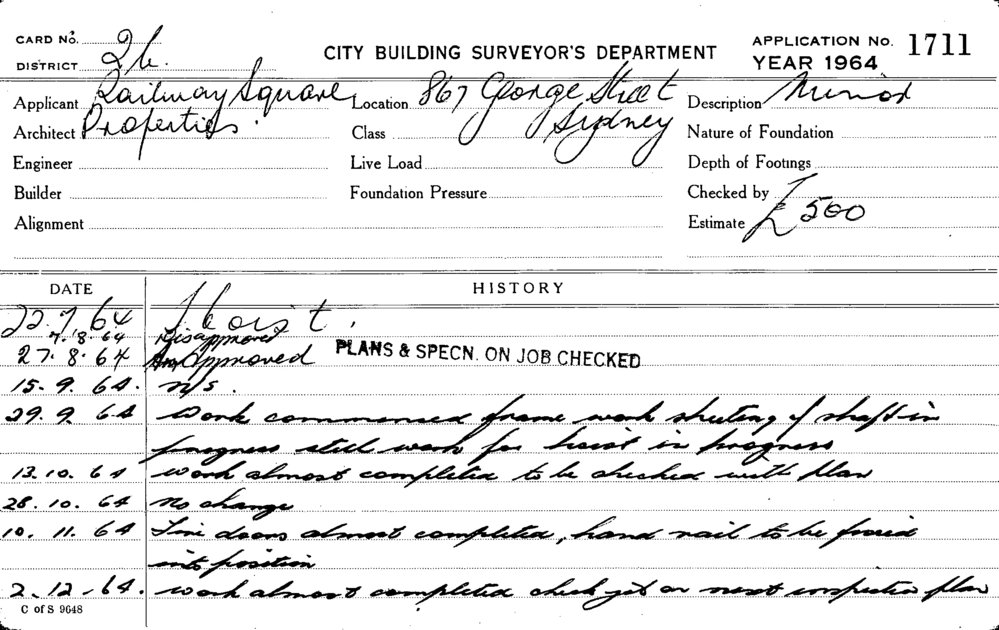 CARD No. 26.
DISTRICT
CITY BUILDING SURVEYOR'S DEPARTMENT
APPLICATION No. 1711
YEAR 1964
Applicant Railway Square
Location 867 George Street
Description Minor
Architect Properties.
Class Sydney
Nature of Foundation
Engineer
Live Load
Depth of Footings
Builder
Foundation Pressure
Checked by
Alignment
Estimate £500
DATE HISTORY
22.7.64 Hoist.
7.8.64 Disapproved
27.8.64 Approved PLANS & SPECN. ON JOB CHECKED
15.9.64. N/S.
29.9.64 Work commenced frame work sheeting of shaft in
progress steel work for hoist in progress
13.10.64 Work almost completed to be checked with plan
28.10.64 No change
10.11.64 Fire doors almost completed, hand rail to be fixed
into position
2.12.64. Work almost completed check on next inspection plan
C of S 9648